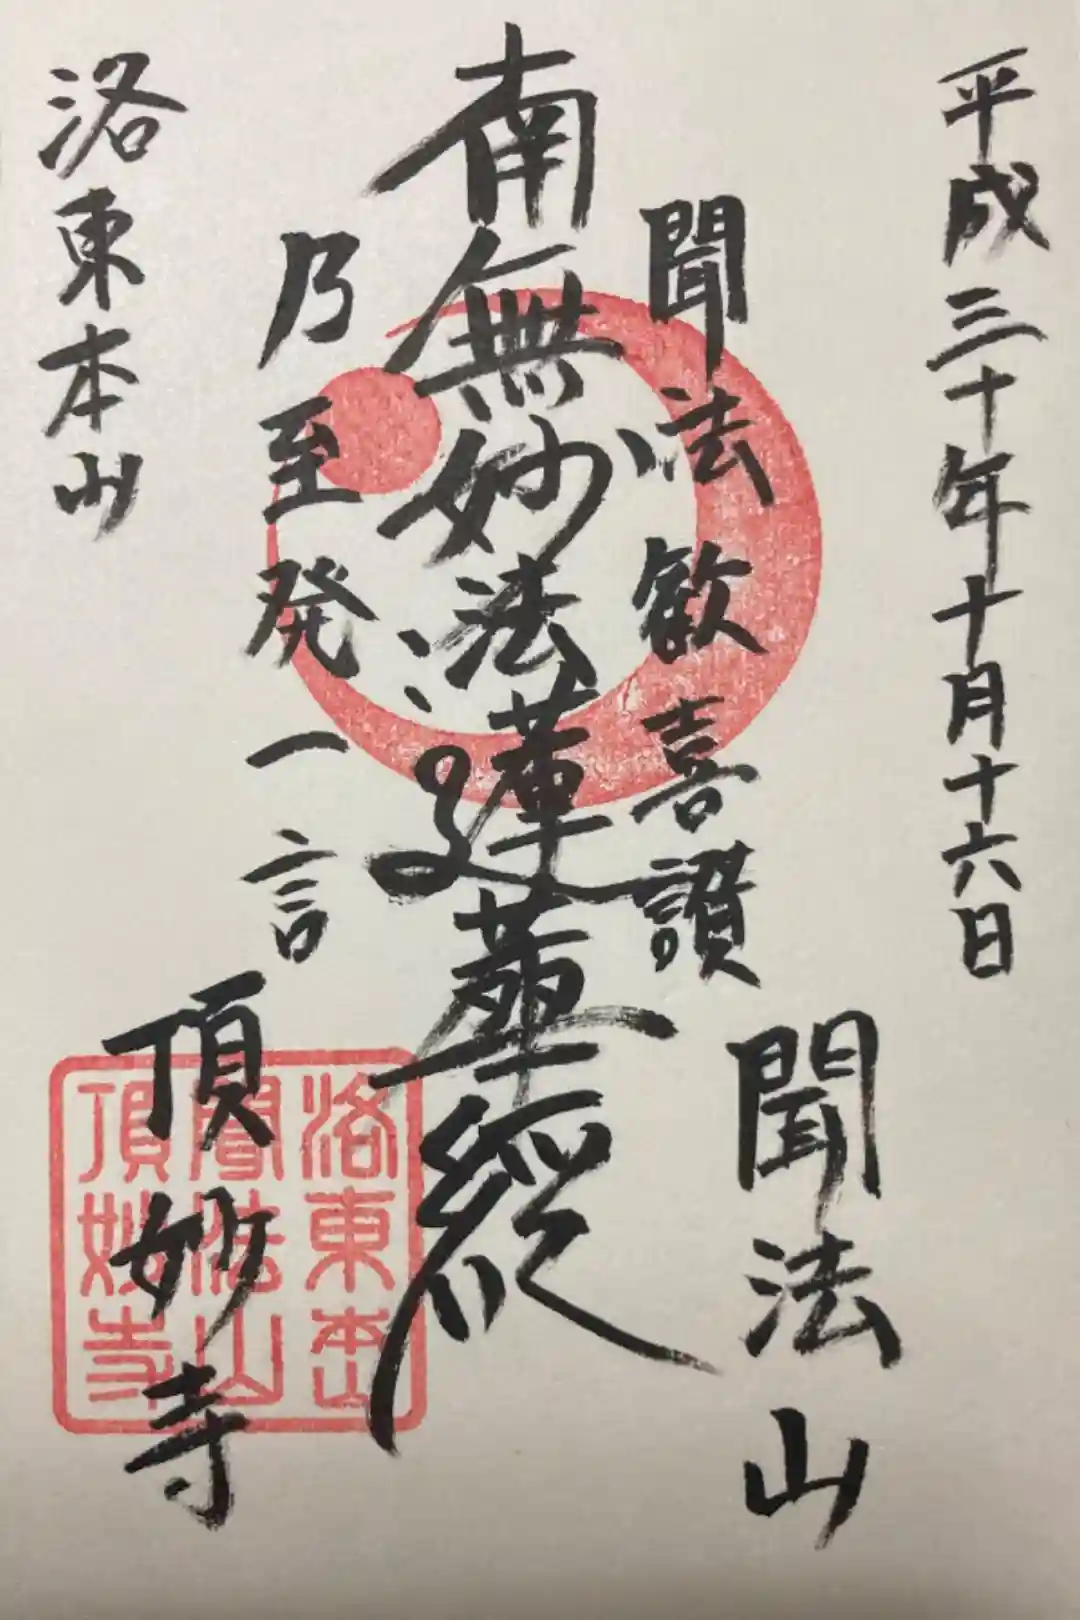 平成三十年十月十六日
聞法山
聞法歓喜讃
南無妙法蓮華經
乃至発一言
頂妙寺
洛東本山
洛東本山
聞法山
頂妙寺